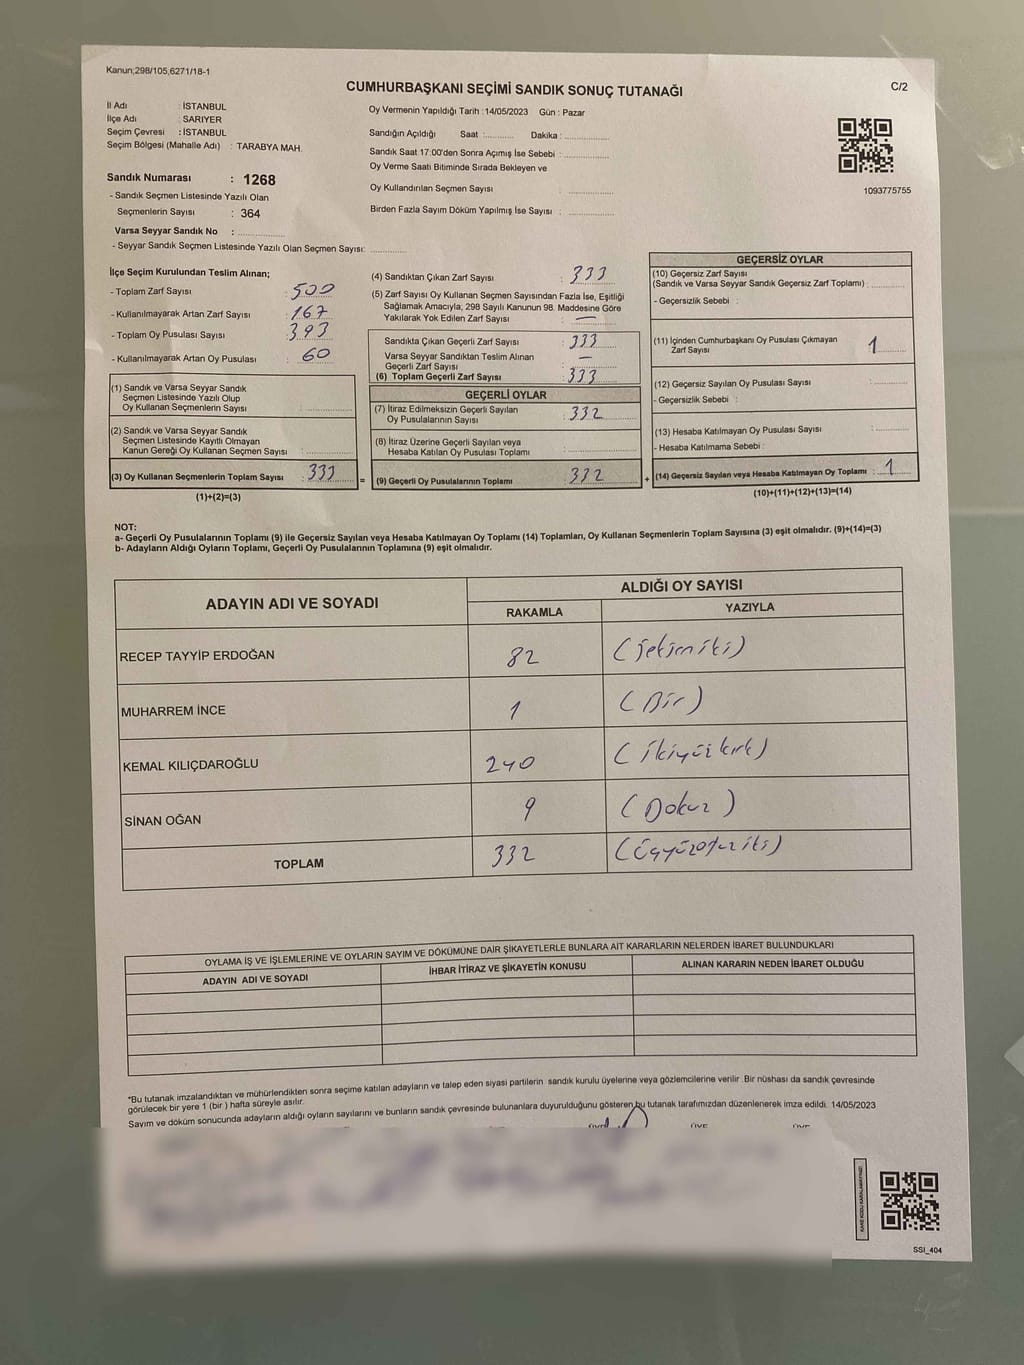 Kanun;298/105,6271/18-1
CUMHURBAŞKANI SEÇİMİ SANDIK SONUÇ TUTANAĞI
C/2
İl Adı : İSTANBUL
İlçe Adı : SARIYER
Seçim Çevresi : İSTANBUL
Seçim Bölgesi (Mahalle Adı) : TARABYA MAH.
Sandık Numarası : 1268
- Sandık Seçmen Listesinde Yazılı Olan
Seçmenlerin Sayısı : 364
Varsa Seyyar Sandık No :
- Seyyar Sandık Seçmen Listesinde Yazılı Olan Seçmen Sayısı:
Oy Vermenin Yapıldığı Tarih : 14/05/2023 Gün : Pazar
Sandığın Açıldığı Saat : Dakika :
Sandık Saat 17:00'den Sonra Açımış İse Sebebi :
Oy Verme Saati Bitiminde Sırada Bekleyen ve
Oy Kullandırılan Seçmen Sayısı :
Birden Fazla Sayım Döküm Yapılmış İse Sayısı :
1093775755
İlçe Seçim Kurulundan Teslim Alınan;
- Toplam Zarf Sayısı : 500
- Kullanılmayarak Artan Zarf Sayısı : 167
- Toplam Oy Pusulası Sayısı : 393
- Kullanılmayarak Artan Oy Pusulası : 60
(1) Sandık ve Varsa Seyyar Sandık
Seçmen Listesinde Yazılı Olup
Oy Kullanan Seçmenlerin Sayısı :
(2) Sandık ve Varsa Seyyar Sandık
Seçmen Listesinde Kayıtlı Olmayan
Kanun Gereği Oy Kullanan Seçmen Sayısı :
(3) Oy Kullanan Seçmenlerin Toplam Sayısı : 333
(1)+(2)=(3)
=
(4) Sandıktan Çıkan Zarf Sayısı : 333
(5) Zarf Sayısı Oy Kullanan Seçmen Sayısından Fazla İse, Eşitliği
Sağlamak Amacıyla, 298 Sayılı Kanunun 98. Maddesine Göre
Yakılarak Yok Edilen Zarf Sayısı : —
Sandıkta Çıkan Geçerli Zarf Sayısı : 333
Varsa Seyyar Sandıktan Teslim Alınan
Geçerli Zarf Sayısı : —
(6) Toplam Geçerli Zarf Sayısı : 333
GEÇERLİ OYLAR
(7) İtiraz Edilmeksizin Geçerli Sayılan
Oy Pusulalarının Sayısı : 332
(8) İtiraz Üzerine Geçerli Sayılan veya
Hesaba Katılan Oy Pusulası Toplamı :
(9) Geçerli Oy Pusulalarının Toplamı : 332
+
GEÇERSİZ OYLAR
(10) Geçersiz Zarf Sayısı
(Sandık ve Varsa Seyyar Sandık Geçersiz Zarf Toplamı) :
- Geçersizlik Sebebi :
(11) İçinden Cumhurbaşkanı Oy Pusulası Çıkmayan
Zarf Sayısı : 1
(12) Geçersiz Sayılan Oy Pusulası Sayısı :
- Geçersizlik Sebebi :
(13) Hesaba Katılmayan Oy Pusulası Sayısı :
- Hesaba Katılmama Sebebi :
(14) Geçersiz Sayılan veya Hesaba Katılmayan Oy Toplamı : 1
(10)+(11)+(12)+(13)=(14)
NOT:
a- Geçerli Oy Pusulalarının Toplamı (9) ile Geçersiz Sayılan veya Hesaba Katılmayan Oy Toplamı (14) Toplamları, Oy Kullanan Seçmenlerin Toplam Sayısına (3) eşit olmalıdır. (9)+(14)=(3)
b- Adayların Aldığı Oyların Toplamı, Geçerli Oy Pusulalarının Toplamına (9) eşit olmalıdır.
ADAYIN ADI VE SOYADI
ALDIĞI OY SAYISI
RAKAMLA YAZIYLA
RECEP TAYYİP ERDOĞAN 82 (Seksen iki)
MUHARREM İNCE 1 (Bir)
KEMAL KILIÇDAROĞLU 240 (İkiyüz kırk)
SİNAN OĞAN 9 (Dokuz)
TOPLAM 332 (Üçyüzotuz iki)
OYLAMA İŞ VE İŞLEMLERİNE VE OYLARIN SAYIM VE DÖKÜMÜNE DAİR ŞİKAYETLERLE BUNLARA AİT KARARLARIN NELERDEN İBARET BULUNDUKLARI
ADAYIN ADI VE SOYADI İHBAR İTİRAZ VE ŞİKAYETİN KONUSU ALINAN KARARIN NEDEN İBARET OLDUĞU
*Bu tutanak imzalandıktan ve mühürlendikten sonra seçime katılan adayların ve talep eden siyasi partilerin sandık kurulu üyelerine veya gözlemcilerine verilir. Bir nüshası da sandık çevresinde
görülecek bir yere 1 (bir ) hafta süreyle asılır.
Sayım ve döküm sonucunda adayların aldığı oyların sayılarını ve bunların sandık çevresinde bulunanlara duyurulduğunu gösteren bu tutanak tarafımızdan düzenlenerek imza edildi. 14/05/2023
KARE KODU KARALAMAYINIZ!
SSI_404